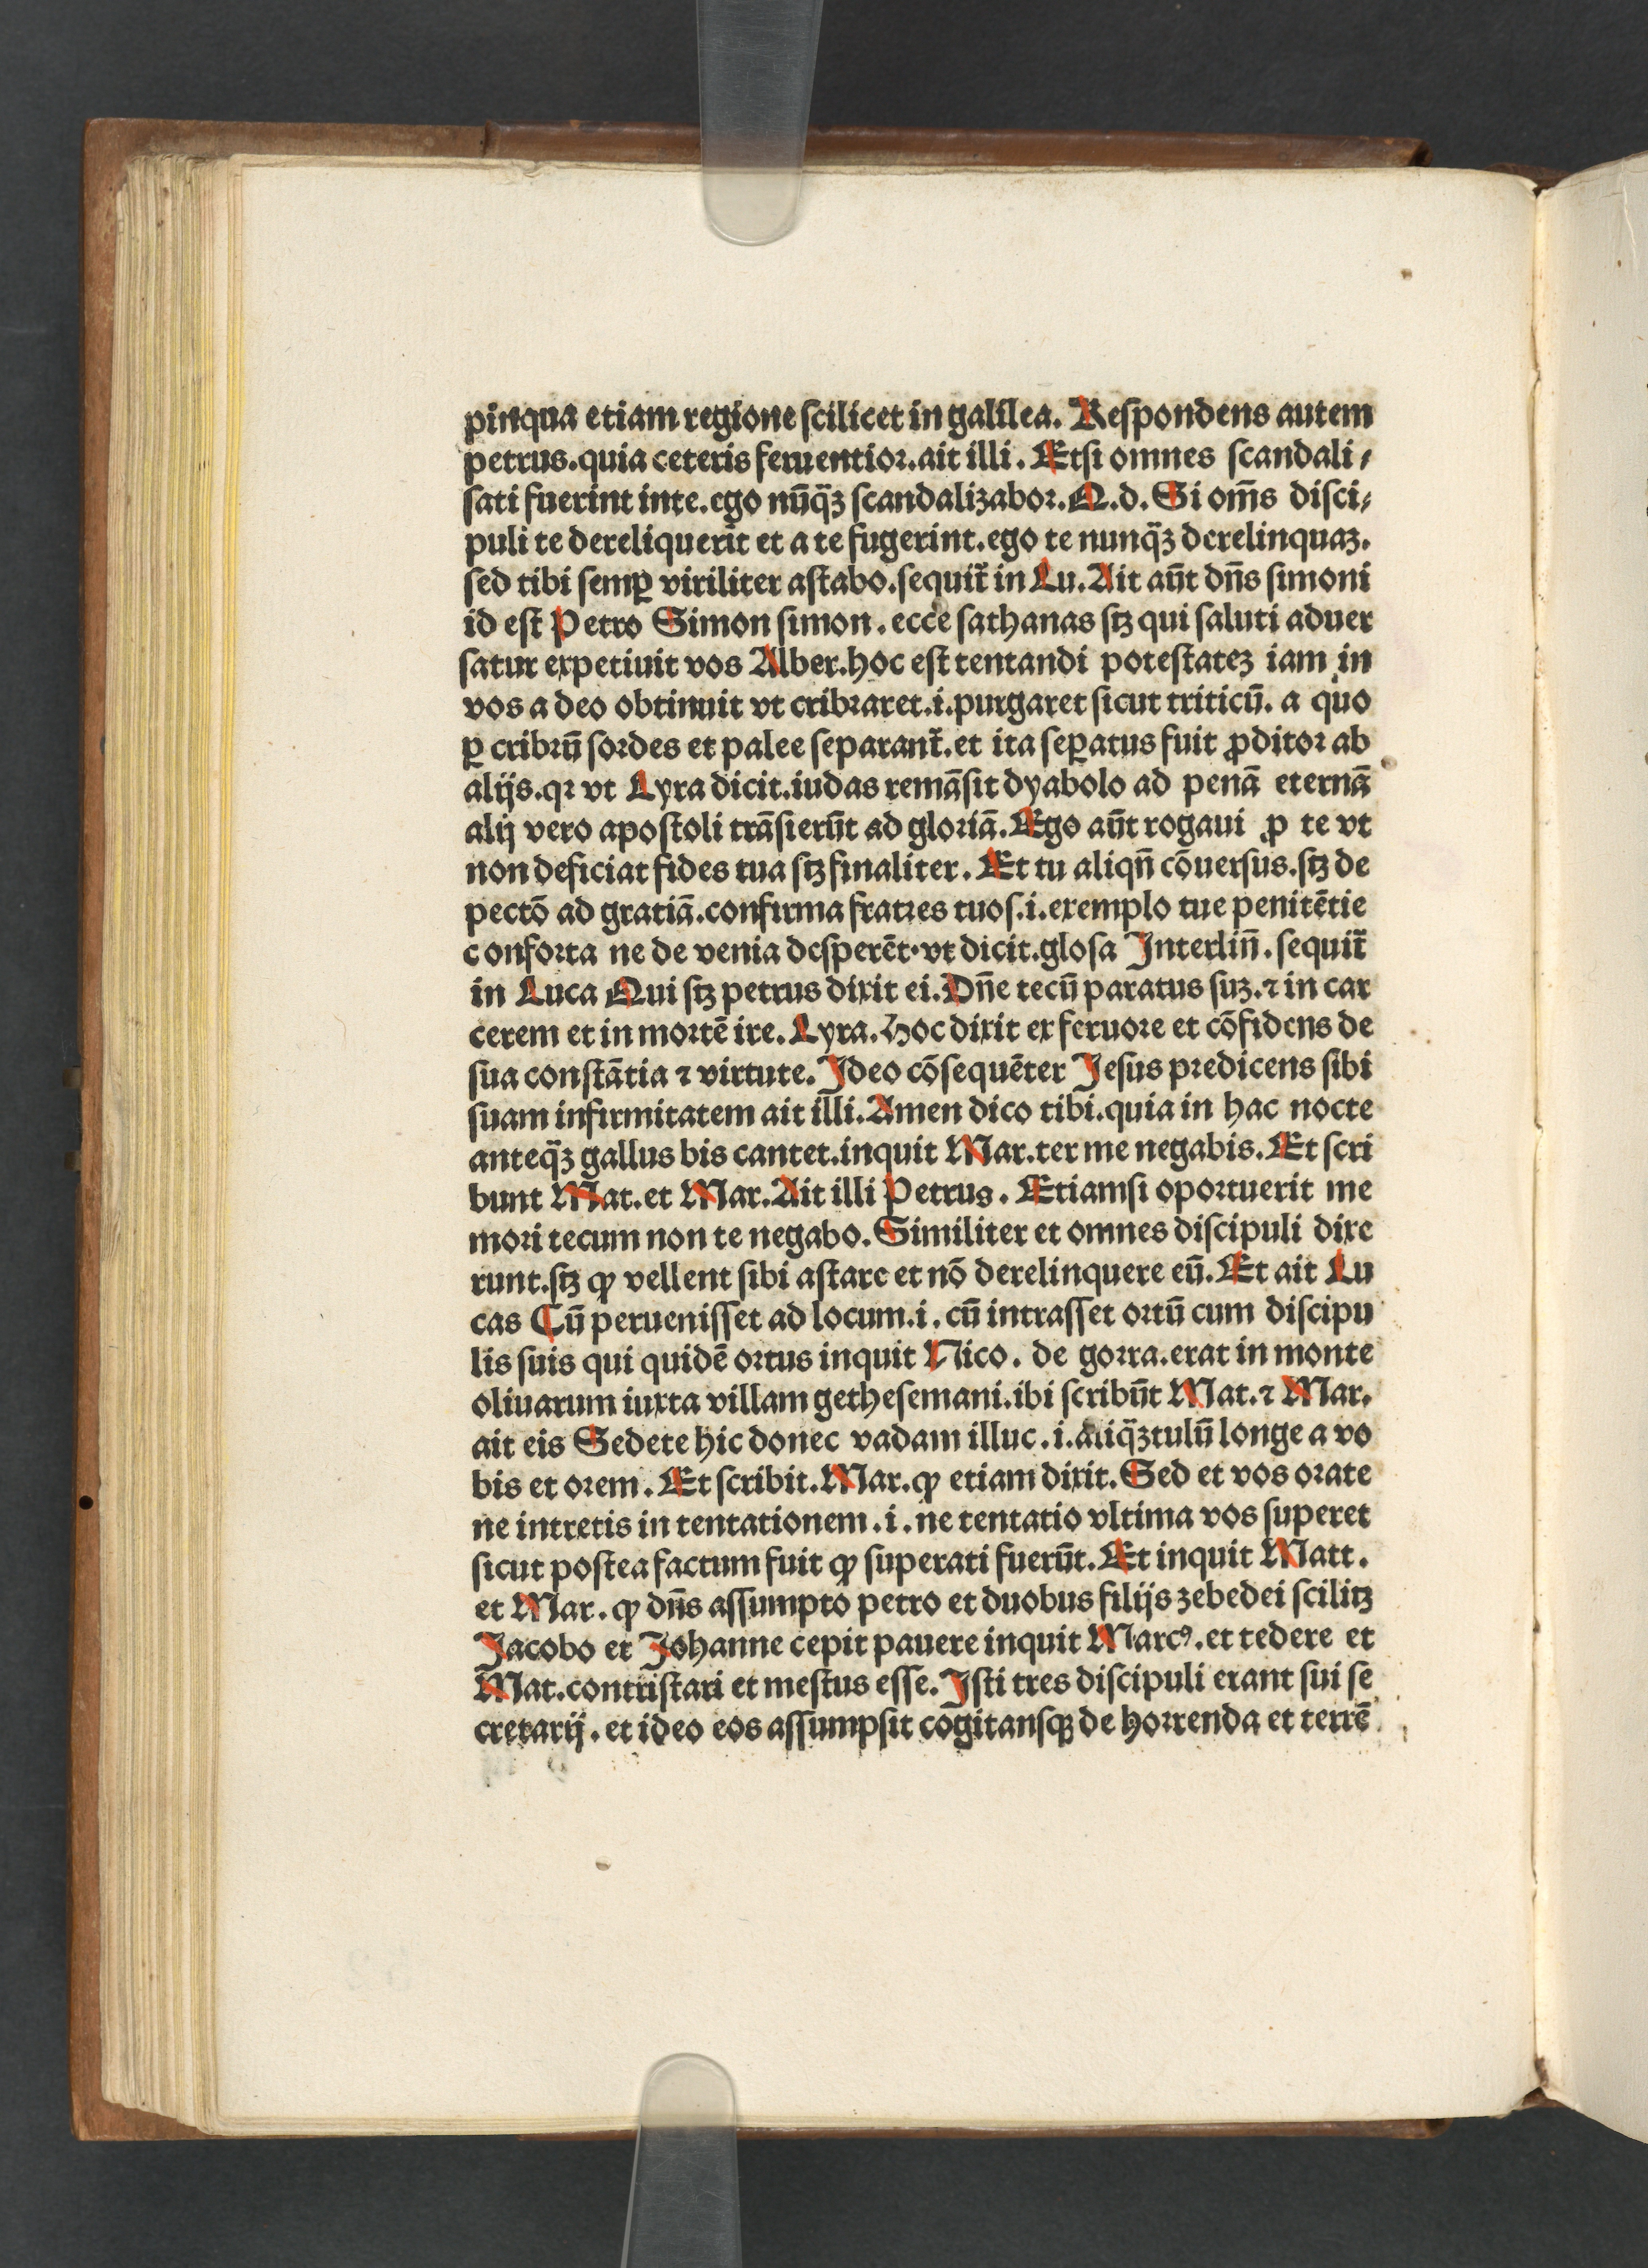 pinqua etiam regione scilicet in galilea. Respondens autem
petrus.quia ceteris feruentior.ait illi. Etsi omnes scandali⸗
sati fuerint inte.ego nūq̄ꝫ scandalizabor.Q.d. Si om̄s disci⸗
puli te dereliquerīt et a te fugerint.ego te nunq̄ꝫ derelinquaꝫ.
sed tibi semꝑ viriliter astabo.sequit̄ in Lu. Ait aūt dn̄s simoni
id est Petro Simon simon. ecce sathanas stꝫ qui saluti aduer
satur expetiuit vos Alber.hoc est tentandi potestateꝫ iam in
vos a deo obtinuit vt cribraret.i.purgaret sicut triticū. a quo
ꝑ cribrū sordes et palee separant̄.et ita seꝑatus fuit ꝓditor ab
alijs.qꝛ vt Lyra dicit.iudas remāsit dyabolo ad penā eternā
alij vero apostoli trāsierūt ad gloriā. Ego aūt rogaui ꝓ te vt
non deficiat fides tua stꝫ finaliter. Et tu aliqn̄ cōuersus.stꝫ de
pectō ad gratiā.confirma fratres tuos.i.exemplo tue penitētie
c onforta ne de venia desperēt.vt dicit.glosa Interlin̄.sequit̄
in Luca Qui stꝫ petrus dixit ei. Dn̄e tecū paratus suꝫ.⁊ in car
cerem et in mortē ire. Lyra. Hoc dixit ex feruore et cōfidens de
sua constātia ⁊ virtute. Ideo cōsequēter Jesus predicens sibi
suam infirmitatem ait illi. Amen dico tibi.quia in hac nocte
anteq̄ꝫ gallus bis cantet.inquit Mar.ter me negabis. Et scri
bunt Mat.et Mar. Ait illi Petrus. Etiamsi oportuerit me
mori tecum non te negabo. Similiter et omnes discipuli dixe
runt.stꝫ ꝙ vellent sibi astare et nō derelinquere eū. Et ait Lu
cas Cū peruenisset ad locum.i. cū intrasset ortū cum discipu
lis suis qui quidē ortus inquit Nico. de gorra.erat in monte
oliuarum iuxta villam gethesemani.ibi scribūt Mat.⁊ Mar.
ait eis Sedete hic donec vadam illuc.i.aliq̄ꝫtulū longe a vo
bis et orem. Et scribit. Mar.ꝙ etiam dixit. Sed et vos orate
ne intretis in tentationem.i.ne tentatio vltima vos superet
sicut postea factum fuit ꝙ superati fuerūt. Et inquit Matt.
et Mar. ꝙ dn̄s assumpto petro et duobus filijs zebedei scilitꝫ
Jacobo et Johanne cepit pauere inquit Marcꝰ.et tedere et
Mat.contristari et mestus esse. Isti tres discipuli erant sui se
cretarij. et ideo eos assumpsit cogitansqꝫ de horrenda et terrē